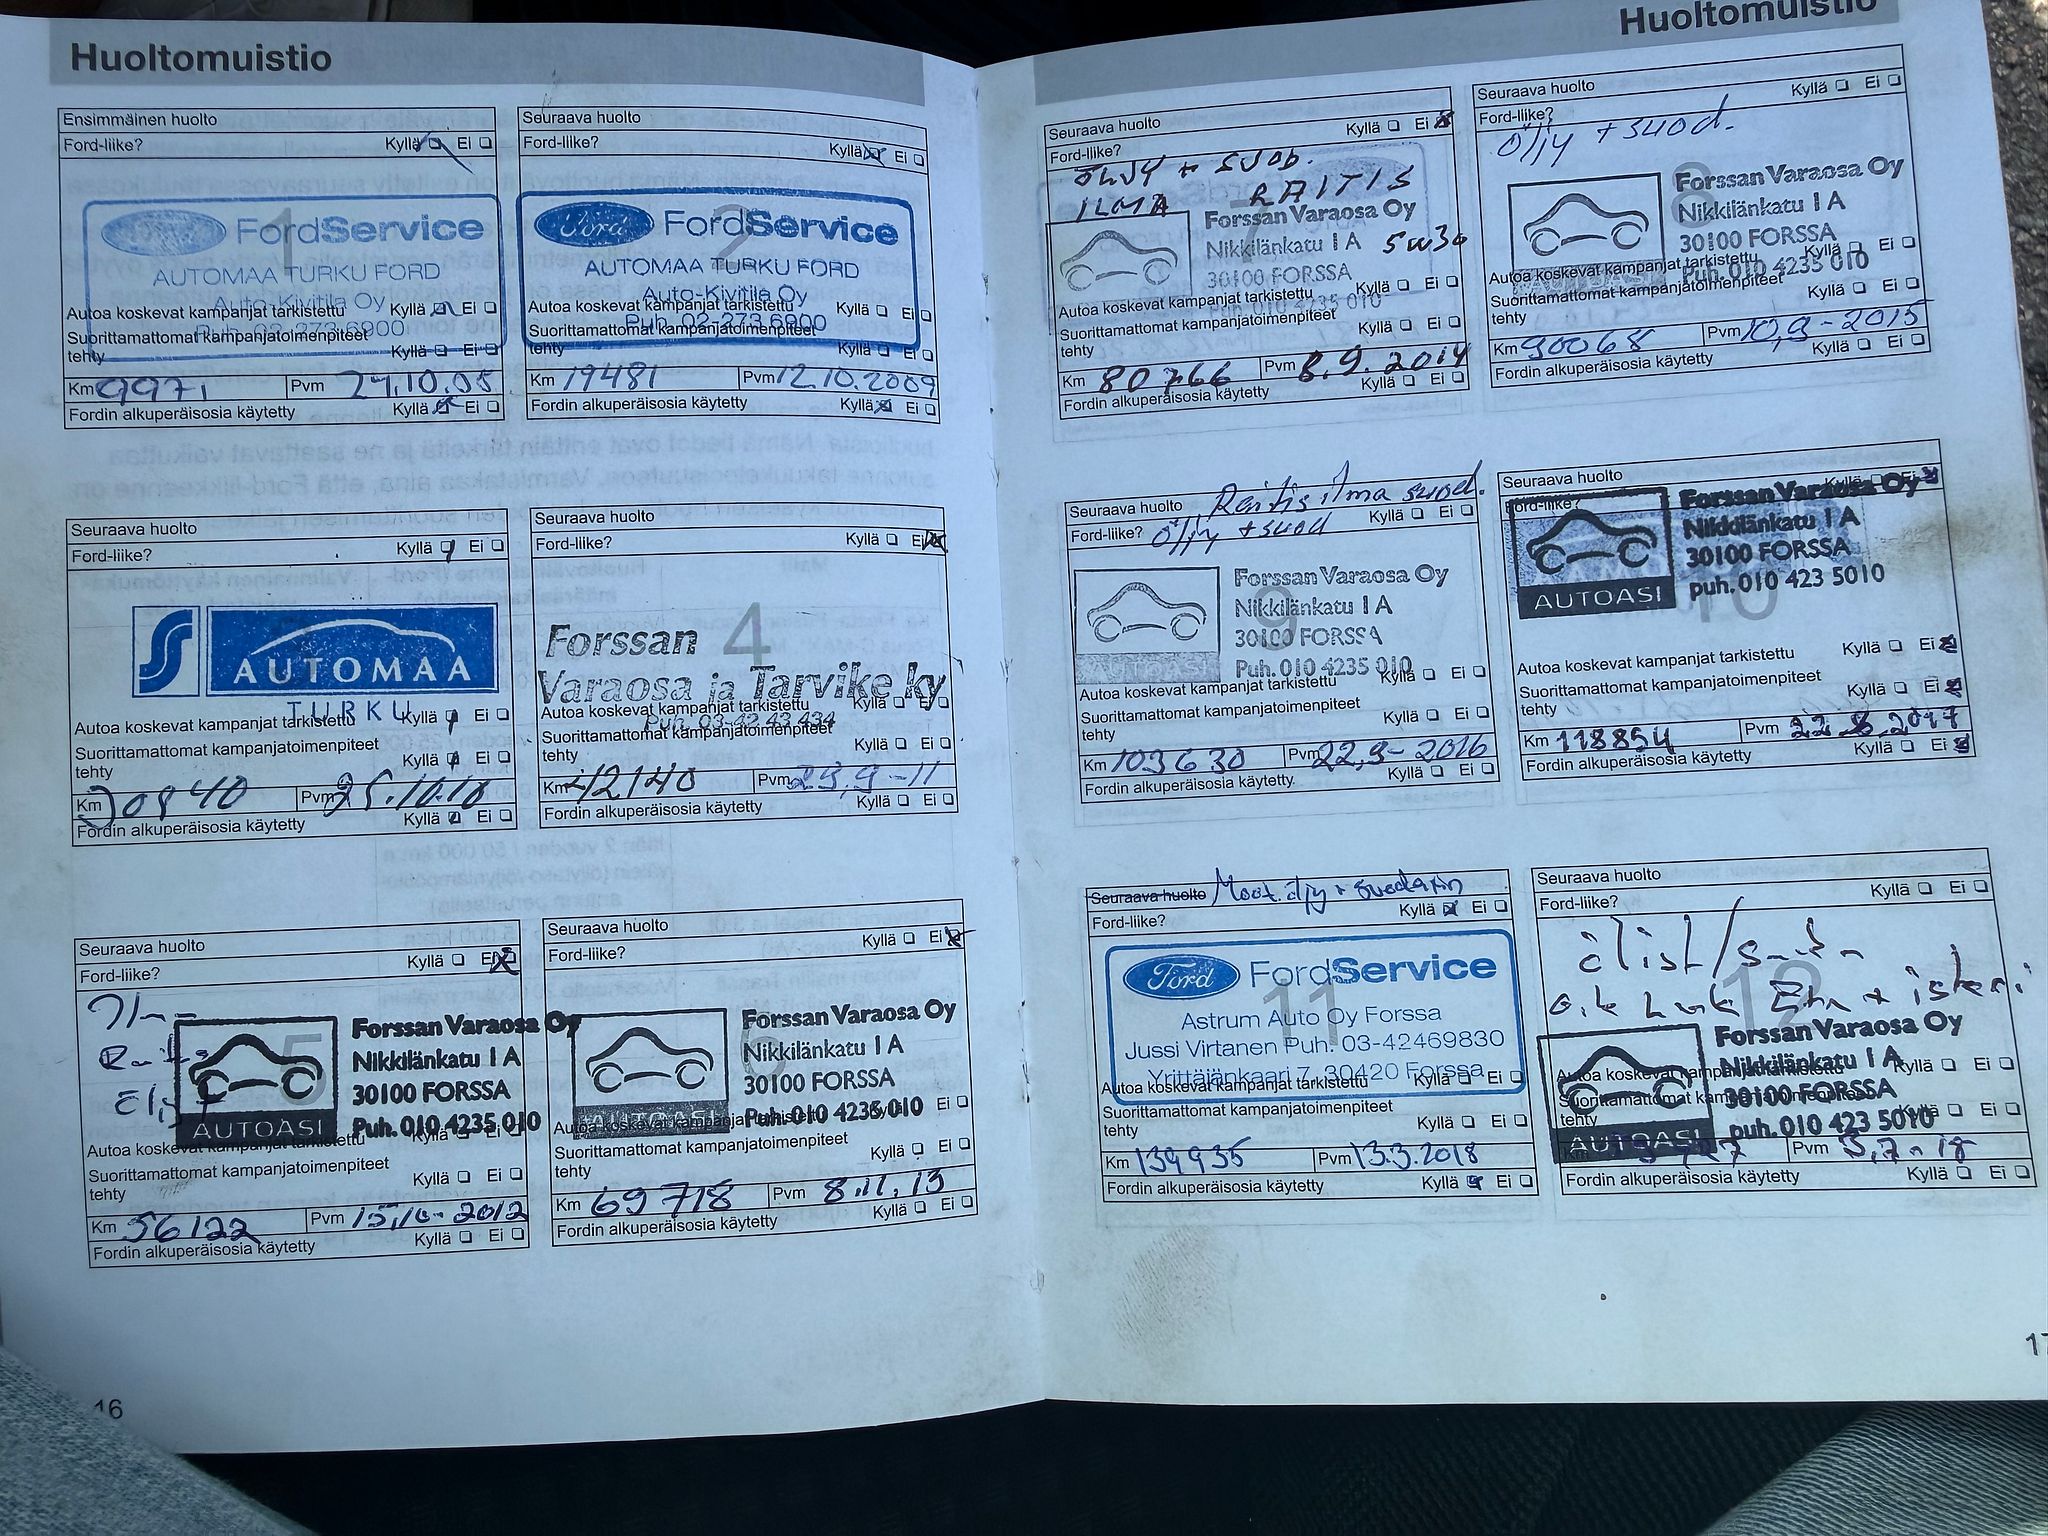 Huoltomuistio
Ensimmäinen huolto
Ford-liike? Kyllä Ei
1
Ford FordService
AUTOMAA TURKU FORD
Auto-Kivitila Oy
Puh. 02-273 6900
Autoa koskevat kampanjat tarkistettu Kyllä Ei
Suorittamattomat kampanjatoimenpiteet
tehty Kyllä Ei
Km 9971 Pvm 24.10.08
Fordin alkuperäisosia käytetty Kyllä Ei
Seuraava huolto
Ford-liike? Kyllä Ei
2
Ford FordService
AUTOMAA TURKU FORD
Auto-Kivitila Oy
Puh. 02-273 6900
Autoa koskevat kampanjat tarkistettu Kyllä Ei
Suorittamattomat kampanjatoimenpiteet
tehty Kyllä Ei
Km 19481 Pvm 12.10.2009
Fordin alkuperäisosia käytetty Kyllä Ei
Seuraava huolto
Ford-liike? Kyllä Ei
AUTOMAA
TURKU
Autoa koskevat kampanjat tarkistettu Kyllä Ei
Suorittamattomat kampanjatoimenpiteet
tehty Kyllä Ei
Km 30840 Pvm 25.10.10
Fordin alkuperäisosia käytetty Kyllä Ei
Seuraava huolto
Ford-liike? Kyllä Ei
4
Forssan
Varaosa ja Tarvike ky
Puh. 03-42 43 434
Autoa koskevat kampanjat tarkistettu Kyllä Ei
Suorittamattomat kampanjatoimenpiteet
tehty Kyllä Ei
Km 42140 Pvm 29.9-11
Fordin alkuperäisosia käytetty Kyllä Ei
Seuraava huolto
Ford-liike? Kyllä Ei
5
Forssan Varaosa Oy
Nikkilänkatu 1 A
30100 FORSSA
AUTOASI Puh. 010 4235 010
Autoa koskevat kampanjat tarkistettu Kyllä Ei
Suorittamattomat kampanjatoimenpiteet
tehty Kyllä Ei
Km 56122 Pvm 15.10-2012
Fordin alkuperäisosia käytetty Kyllä Ei
Seuraava huolto
Ford-liike? Kyllä Ei
6
Forssan Varaosa Oy
Nikkilänkatu 1 A
30100 FORSSA
AUTOASI Puh. 010 4235 010
Autoa koskevat kampanjat tarkistettu Kyllä Ei
Suorittamattomat kampanjatoimenpiteet
tehty Kyllä Ei
Km 69718 Pvm 8.11.13
Fordin alkuperäisosia käytetty Kyllä Ei
16
Huoltomuistio
Seuraava huolto
Ford-liike? Kyllä Ei
ÖLJY + SUOD.
ILMA RAITIS
7
Forssan Varaosa Oy
Nikkilänkatu 1 A 5W30
30100 FORSSA
Puh. 010 4235 010
Autoa koskevat kampanjat tarkistettu Kyllä Ei
Suorittamattomat kampanjatoimenpiteet
tehty Kyllä Ei
Km 80766 Pvm 8.9.2014
Fordin alkuperäisosia käytetty Kyllä Ei
Seuraava huolto
Ford-liike? Kyllä Ei
öljy + suod.
8
Forssan Varaosa Oy
Nikkilänkatu 1 A
30100 FORSSA
Puh. 010 4235 010
Autoa koskevat kampanjat tarkistettu Kyllä Ei
Suorittamattomat kampanjatoimenpiteet
tehty Kyllä Ei
Km 90068 Pvm 10.9-2015
Fordin alkuperäisosia käytetty Kyllä Ei
Seuraava huolto Raitis ilma suod.
Ford-liike? öljy + suod Kyllä Ei
9
Forssan Varaosa Oy
Nikkilänkatu 1 A
30100 FORSSA
AUTOASI Puh. 010 4235 010
Autoa koskevat kampanjat tarkistettu Kyllä Ei
Suorittamattomat kampanjatoimenpiteet
tehty Kyllä Ei
Km 103630 Pvm 22.9-2016
Fordin alkuperäisosia käytetty Kyllä Ei
Seuraava huolto
Ford-liike? Kyllä Ei
10
Forssan Varaosa Oy
Nikkilänkatu 1 A
30100 FORSSA
AUTOASI puh. 010 423 5010
Autoa koskevat kampanjat tarkistettu Kyllä Ei
Suorittamattomat kampanjatoimenpiteet
tehty Kyllä Ei
Km 118854 Pvm 22.8.2017
Fordin alkuperäisosia käytetty Kyllä Ei
Seuraava huolto
Ford-liike? Kyllä Ei
11
Ford FordService
Astrum Auto Oy Forssa
Jussi Virtanen Puh. 03-42469830
Yrittäjänkaari 7, 30420 Forssa
Autoa koskevat kampanjat tarkistettu Kyllä Ei
Suorittamattomat kampanjatoimenpiteet
tehty Kyllä Ei
Km 134935 Pvm 13.3.2018
Fordin alkuperäisosia käytetty Kyllä Ei
Seuraava huolto
Ford-liike? Kyllä Ei
12
Forssan Varaosa Oy
Nikkilänkatu 1 A
30100 FORSSA
AUTOASI puh. 010 423 5010
Autoa koskevat kampanjat tarkistettu Kyllä Ei
Suorittamattomat kampanjatoimenpiteet
tehty Kyllä Ei
Km Pvm 5.7-18
Fordin alkuperäisosia käytetty Kyllä Ei
17